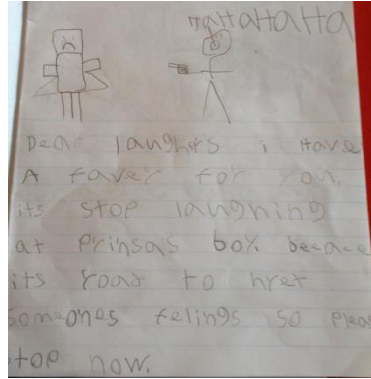 HaHaHaHa
Dear laughers i Have
A faver for you.
its stop laughing
at Prinsas boy. becace
its roat to hret
someones felings so pleas
stop now.